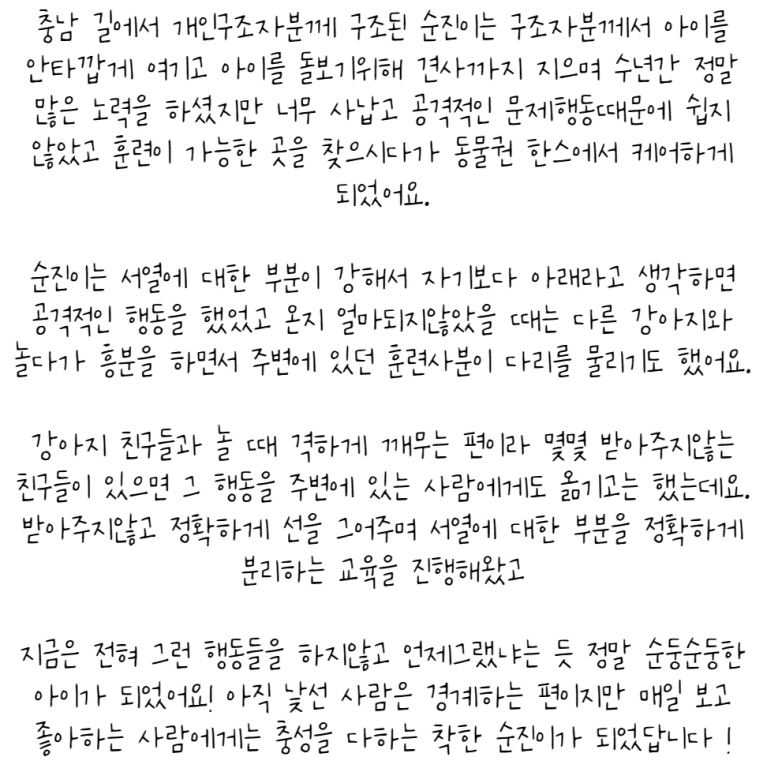 충남 길에서 개인구조자분께 구조된 순진이는 구조자분께서 아이를
안타깝게 여기고 아이를 돌보기위해 견사까지 지으며 수년간 정말
많은 노력을 하셨지만 너무 사납고 공격적인 문제행동때문에 쉽지
않았고 훈련이 가능한 곳을 찾으시다가 동물권 한스에서 케어하게
되었어요.
순진이는 서열에 대한 부분이 강해서 자기보다 아래라고 생각하면
공격적인 행동을 했었고 온지 얼마되지않았을 때는 다른 강아지와
놀다가 흥분을 하면서 주변에 있던 훈련사분이 다리를 물리기도 했어요.
강아지 친구들과 놀 때 격하게 깨무는 편이라 몇몇 받아주지않는
친구들이 있으면 그 행동을 주변에 있는 사람에게도 옮기고는 했는데요.
받아주지않고 정확하게 선을 그어주며 서열에 대한 부분을 정확하게
분리하는 교육을 진행해왔고
지금은 전혀 그런 행동들을 하지않고 언제그랬냐는 듯 정말 순둥순둥한
아이가 되었어요! 아직 낯선 사람은 경계하는 편이지만 매일 보고
좋아하는 사람에게는 충성을 다하는 착한 순진이가 되었답니다 !